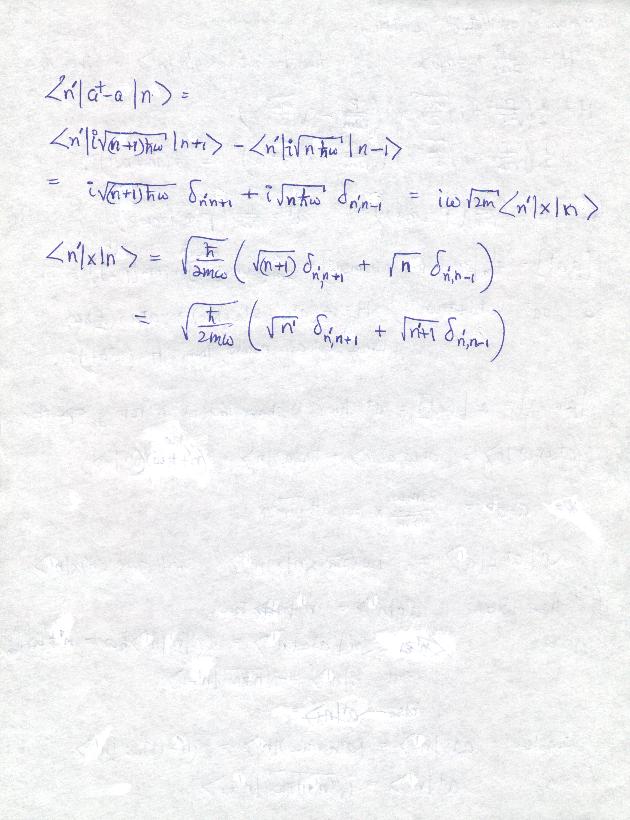 ⟨n′| a†-a |n⟩ =
⟨n′| i√((n+1)ħω) |n+1⟩ − ⟨n′| i√(nħω) |n−1⟩
= i√((n+1)ħω) δn′n+1 + i√(nħω) δn′,n−1 = iω√(2m) ⟨n′|x|n⟩
⟨n′|x|n⟩ = √(ħ/2mω) ( √(n+1) δn′,n+1 + √n δn′,n−1 )
= √(ħ/2mω) ( √n′ δn′,n+1 + √(n′+1) δn′,n−1 )